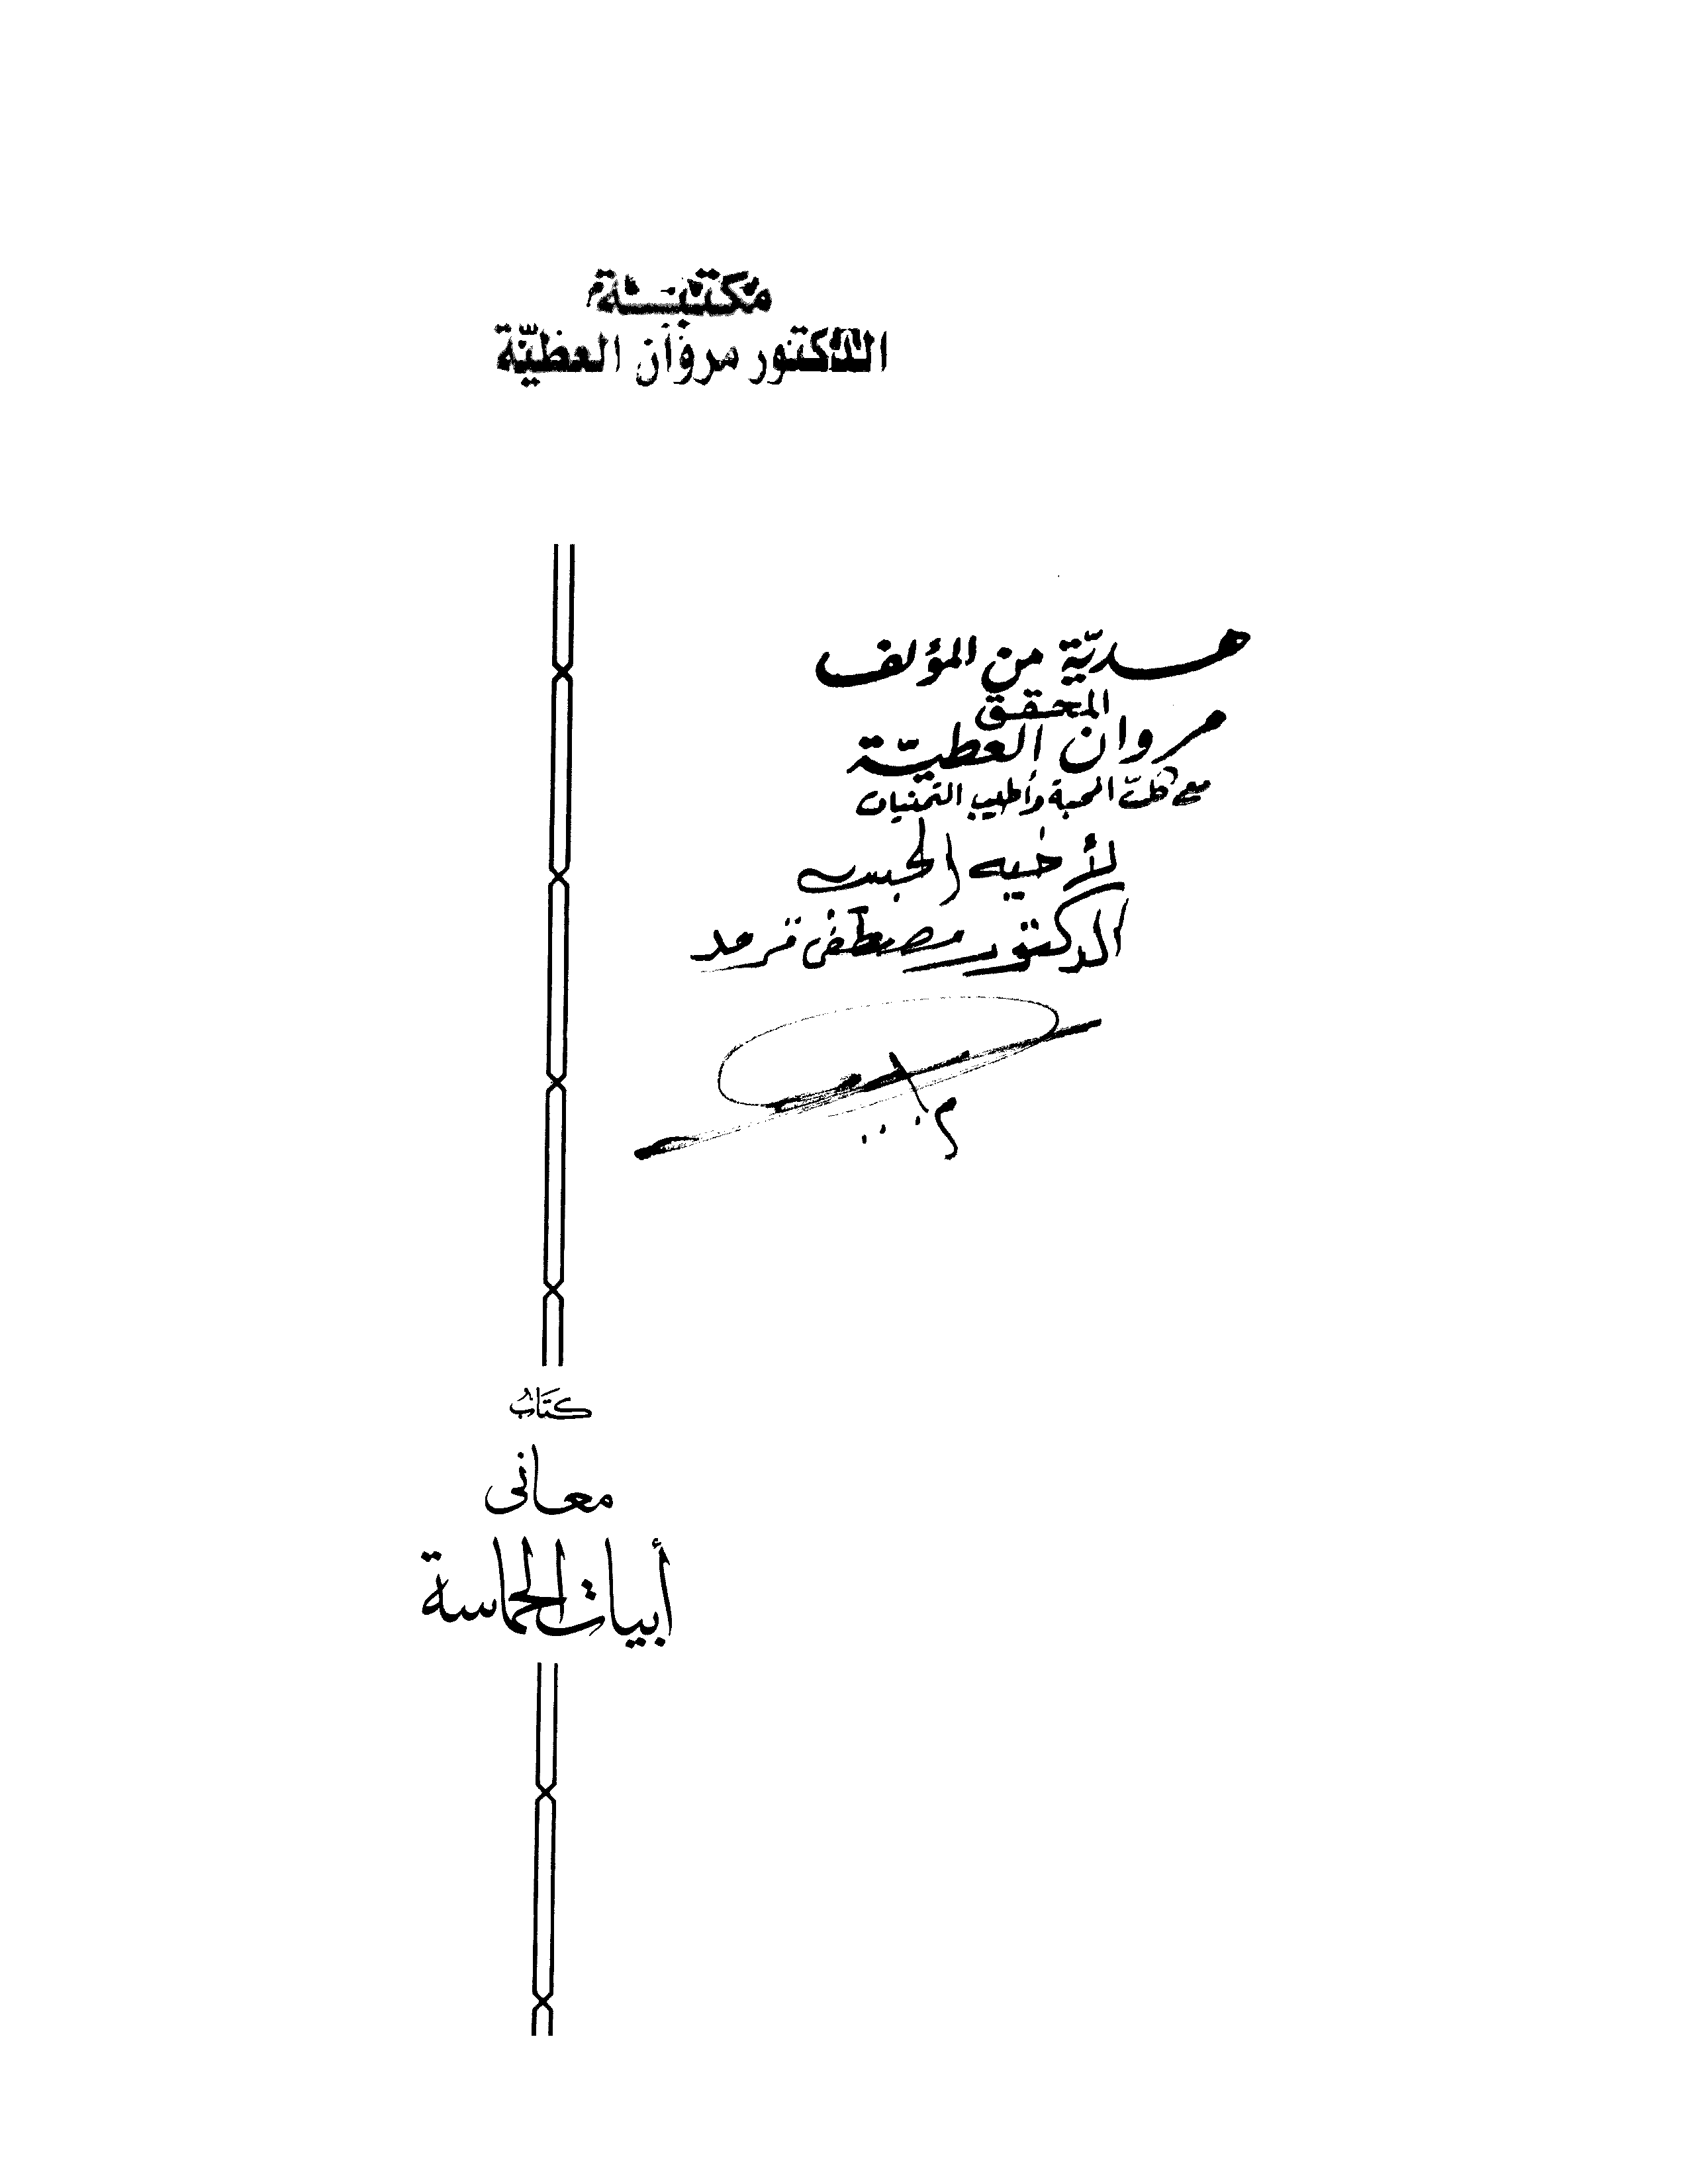 مكتبة
الدكتور مروان العطيّة
هديّة من المؤلف
المحقق
مروان العطيّة
مع كلّ المحبة وأطيب التمنيات
لأخيه الحبيب
الدكتور مصطفى قرمد
كتابُ
معانى
أبيات الحماسة